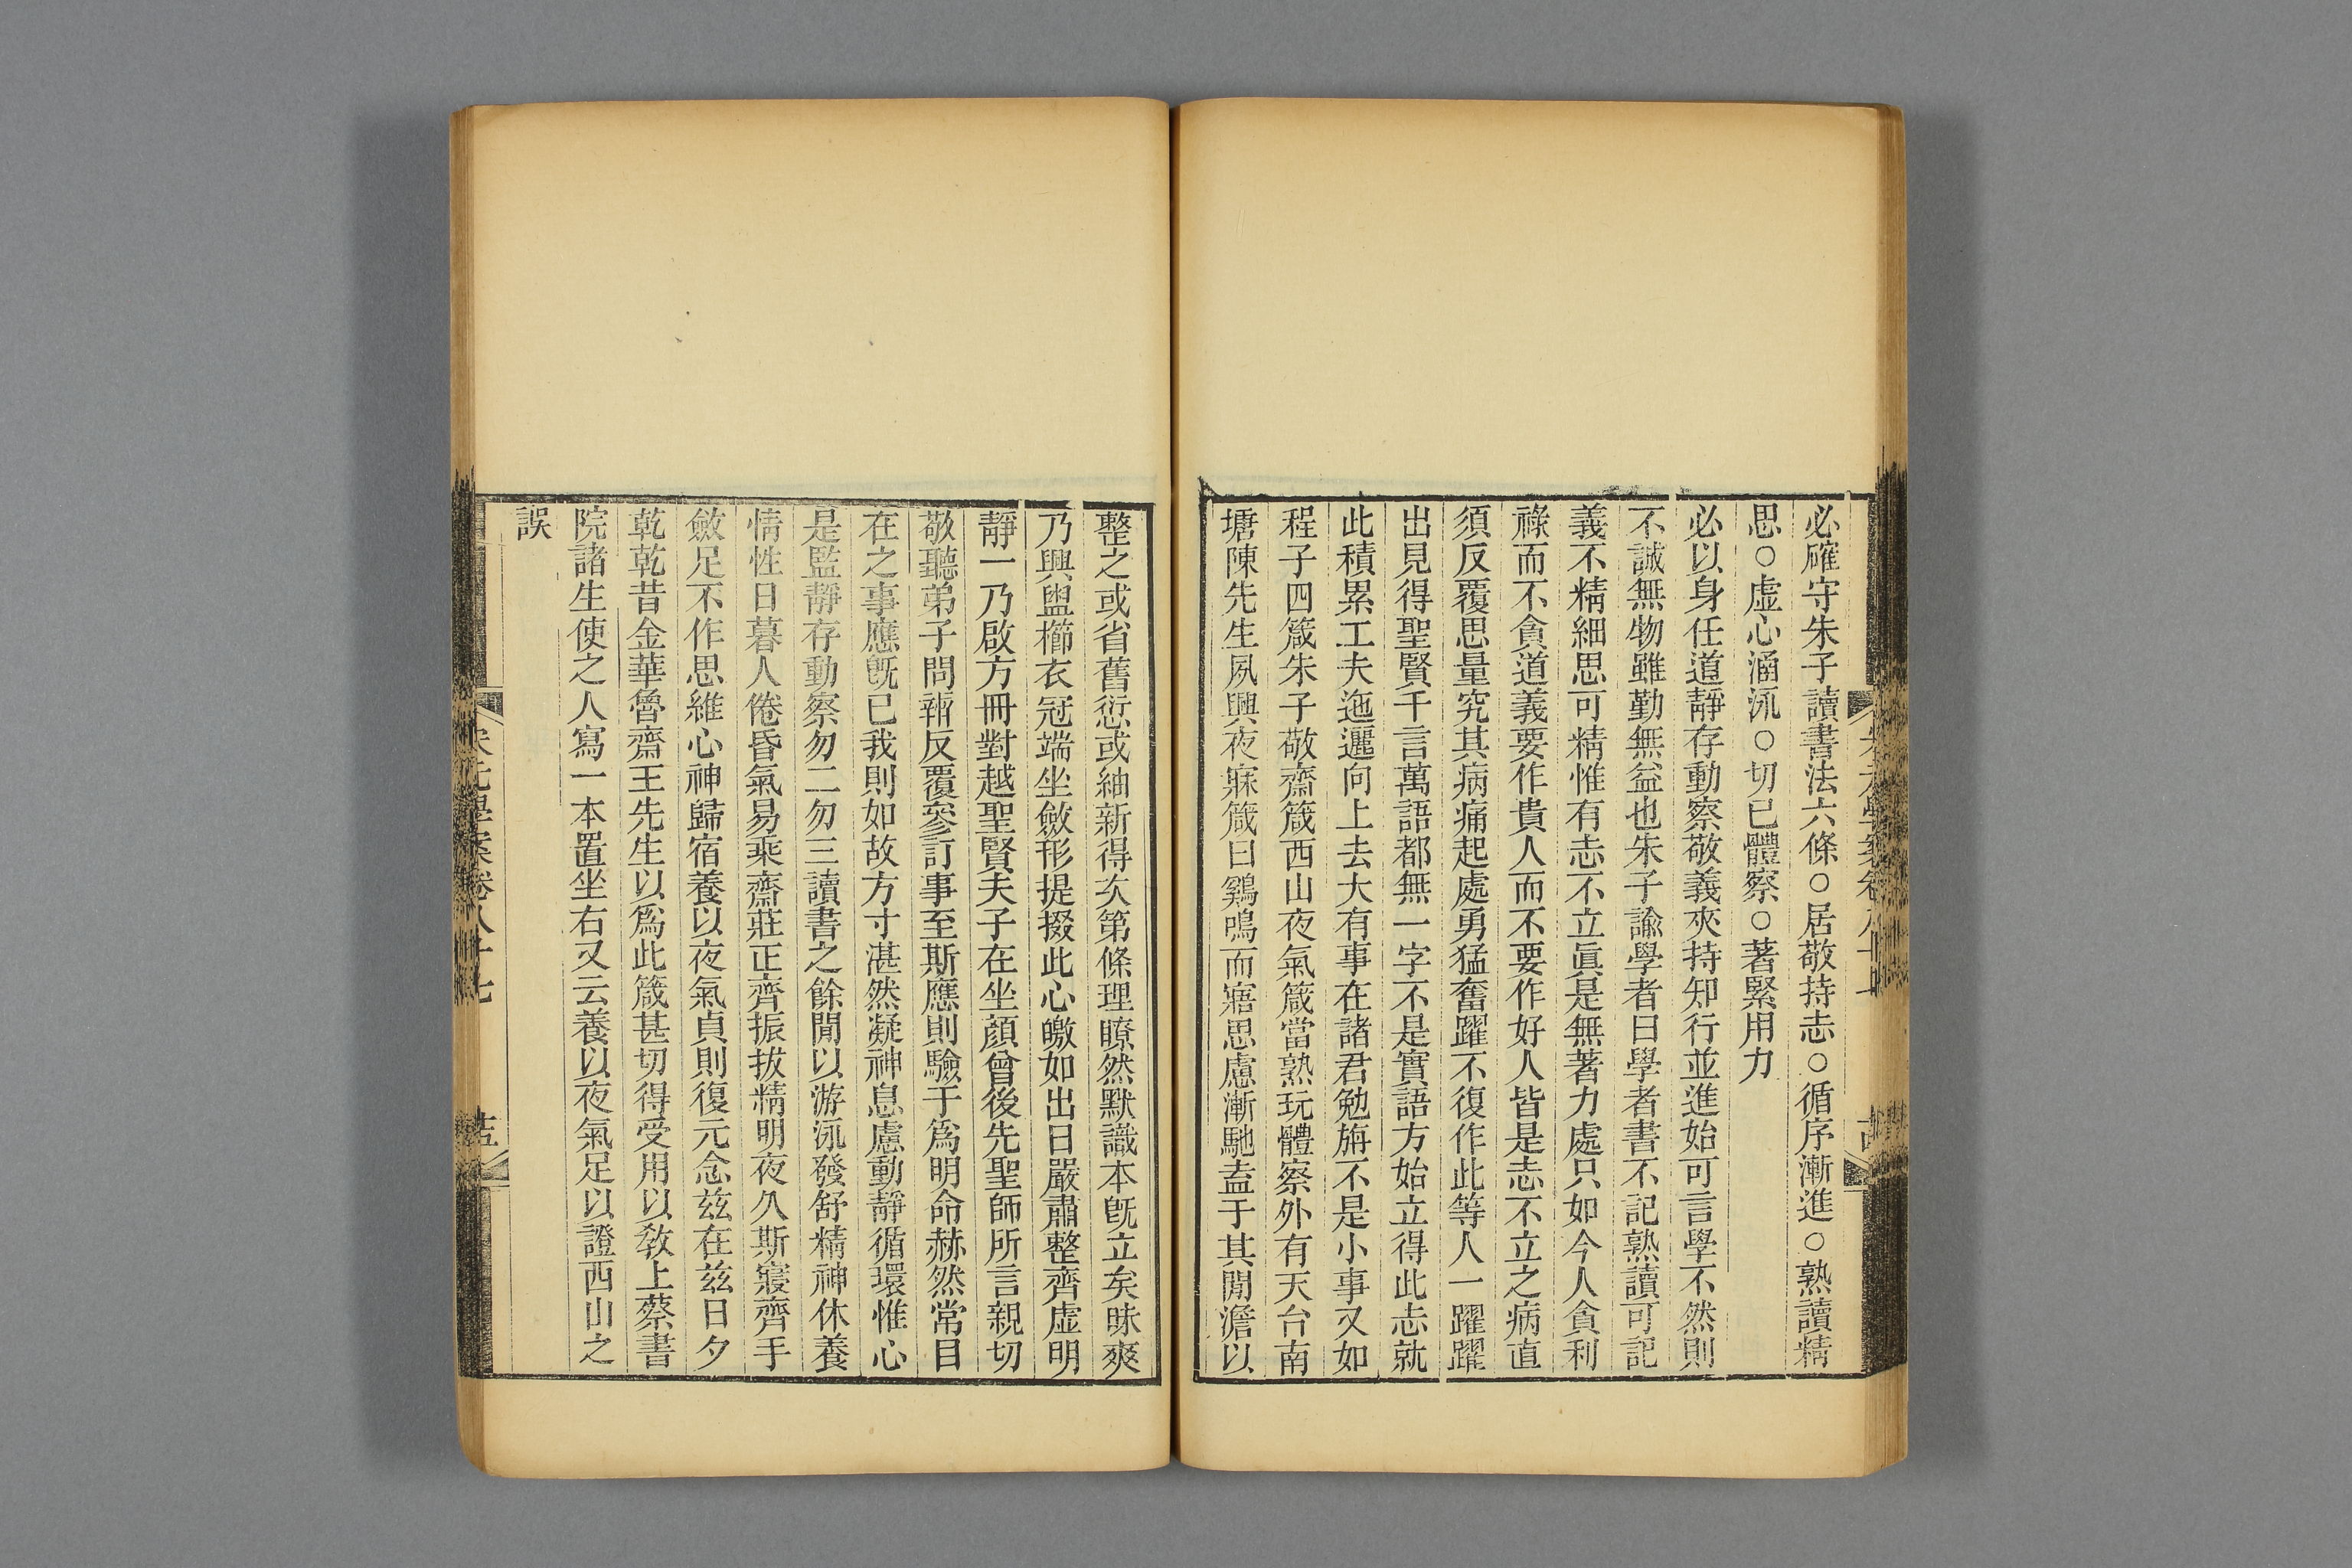 必確守朱子讀書法六條○居敬持志○循序漸進○熟讀精
思○虛心涵泳○切己體察○著緊用力
必以身任道靜存動察敬義夾持知行並進始可言學不然則
不誠無物雖勤無益也朱子諭學者曰學者書不記熟讀可記
義不精細思可精惟有志不立眞是無著力處只如今人貪利
祿而不貪道義要作貴人而不要作好人皆是志不立之病直
須反覆思量究其病痛起處勇猛奮躍不復作此等人一躍躍
出見得聖賢千言萬語都無一字不是實語方始立得此志就
此積累工夫迤邐向上去大有事在諸君勉旃不是小事又如
程子四箴朱子敬齋箴西山夜氣箴當熟玩體察外有天台南
塘陳先生夙興夜寐箴曰鷄鳴而寤思慮漸馳盍于其閒澹以
整之或省舊愆或紬新得次第條理瞭然默識本旣立矣昧爽
乃興盥櫛衣冠端坐斂形提掇此心皦如出日嚴肅整齊虛明
靜一乃啟方冊對越聖賢夫子在坐顏曾後先聖師所言親切
敬聽弟子問辯反覆參訂事至斯應則驗于爲明命赫然常目
在之事應旣已我則如故方寸湛然凝神息慮動靜循環惟心
是監靜存動察勿二勿三讀書之餘閒以游泳發舒精神休養
情性日暮人倦昏氣易乘齋莊正齊振拔精明夜久斯寢齊手
斂足不作思維心神歸宿養以夜氣貞則復元念茲在茲日夕
乾乾昔金華魯齋王先生以爲此箴甚切得受用以敎上蔡書
院諸生使之人寫一本置坐右又云養以夜氣足以證西山之
誤
宋元學案卷八十七